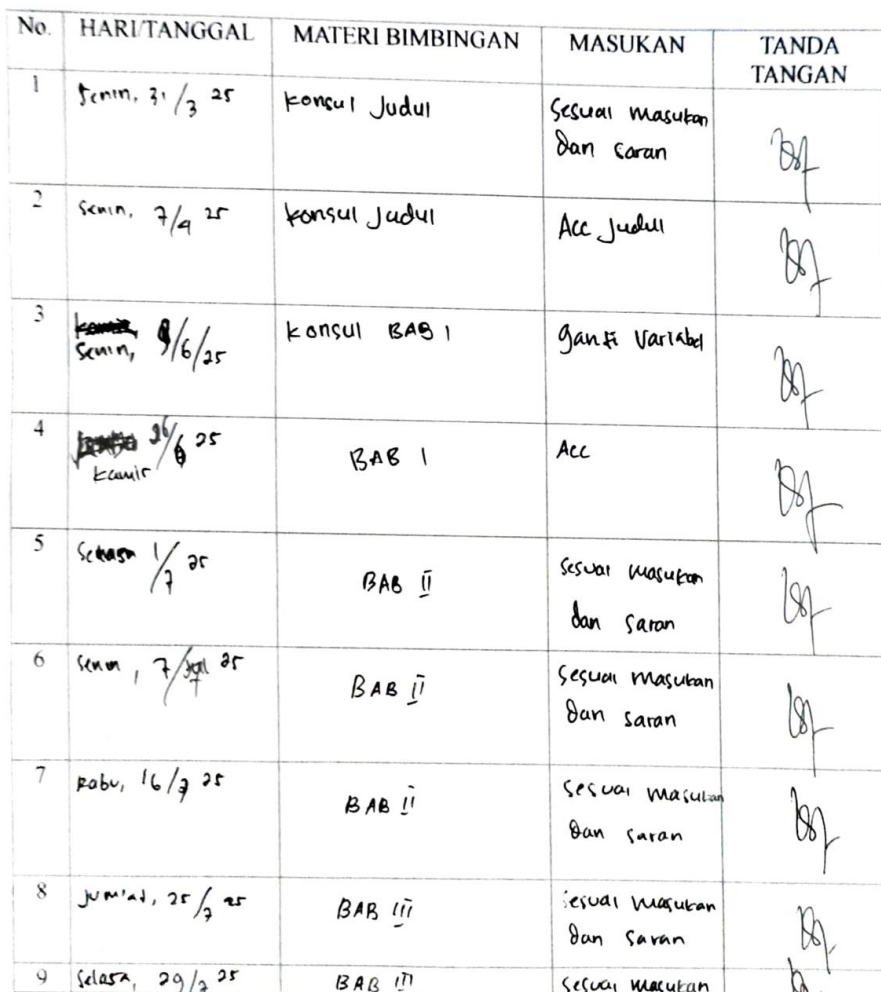 No. HARI/TANGGAL MATERI BIMBINGAN MASUKAN TANDA TANGAN
1 Senin, 31/3 25 konsul Judul Sesuai masukan
dan saran
2 Senin, 7/4 25 konsul Judul Acc Judul
3 Senin, 9/6/25 konsul BAB I ganti Variabel
4 Kamis 26/6 25 BAB I Acc
5 Selasa 1/7 25 BAB II Sesuai masukan
dan saran
6 Senin, 7/7 25 BAB II Sesuai masukan
dan saran
7 Rabu, 16/7 25 BAB II Sesuai masukan
dan saran
8 Jum'at, 25/7 25 BAB III Sesuai masukan
dan saran
9 Selasa, 29/7 25 BAB III Sesuai masukan